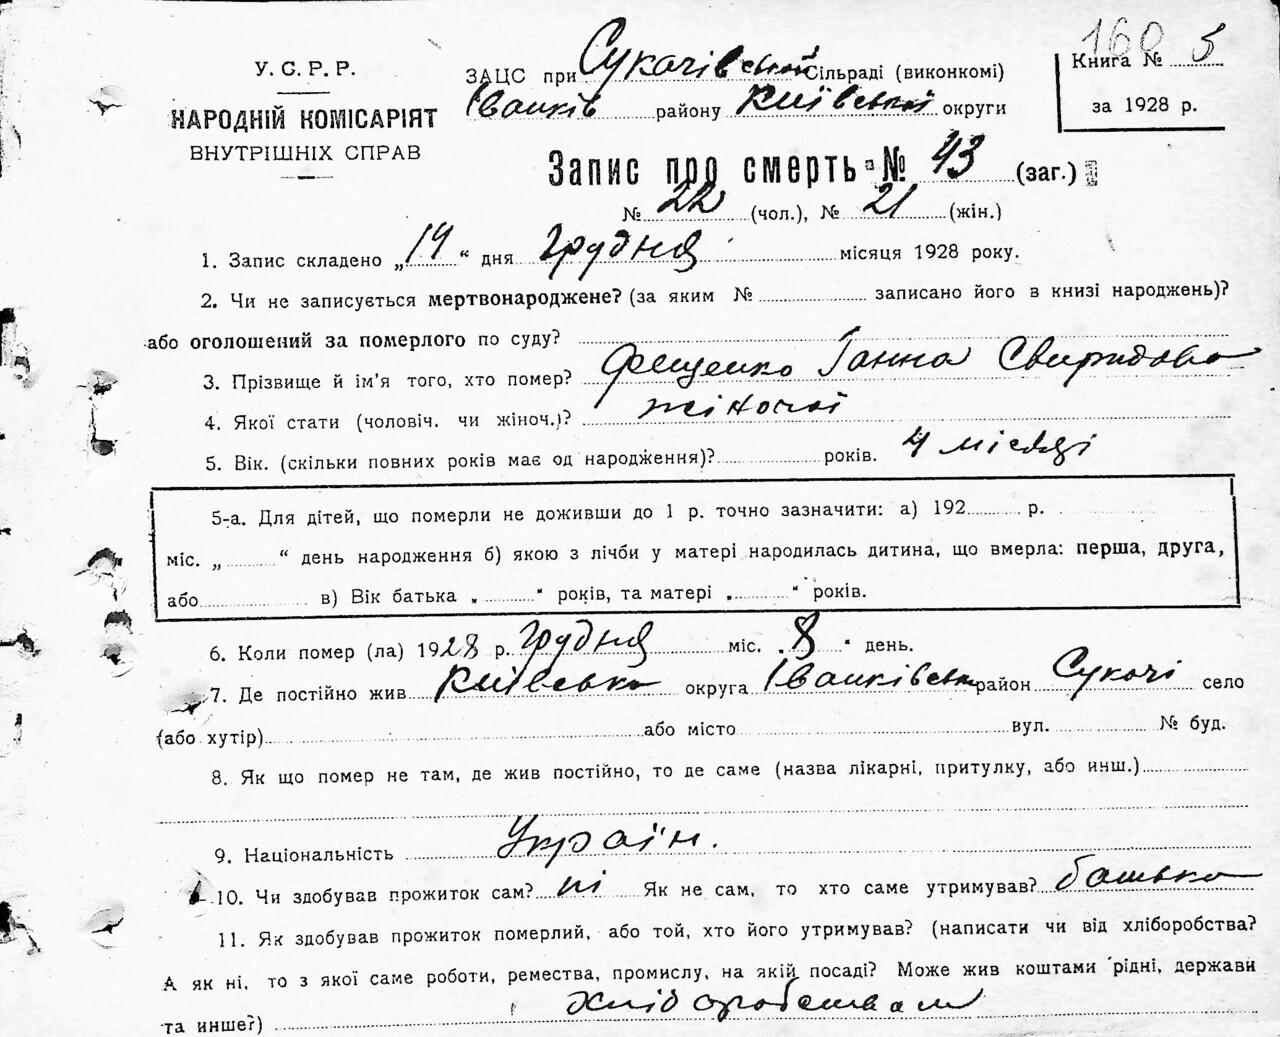 160
У. С. Р. Р.
НАРОДНІЙ КОМІСАРІЯТ
ВНУТРІШНІХ СПРАВ
ЗАЦС при Сукачівській Сільраді (виконкомі)
Іванків району Київської округи
Книга № 5
за 1928 р.
Запис про смерть № 43 (заг.)
№ 22 (чол.), № 21 (жін.)
1. Запис складено „14“ дня грудня місяця 1928 року.
2. Чи не записується мертвонароджене? (за яким № записано його в книзі народжень)?
або оголошений за померлого по суду?
3. Прізвище й ім’я того, хто помер? Фещенко Ганна Свиридова
4. Якої стати (чоловіч. чи жіноч.)? жіночої
5. Вік. (скільки повних років має од народження)? років. 4 місяці
5-а. Для дітей, що померли не доживши до 1 р. точно зазначити: а) 192 р.
міс. „ “ день народження б) якою з лічби у матері народилась дитина, що вмерла: перша, друга,
або в) Вік батька „ “ років, та матері „ “ років.
6. Коли помер (ла) 1928 р. грудня міс. „8“ день.
7. Де постійно жив Київська округа Іванківськ район Сукачі село
(або хутір) або місто вул. № буд.
8. Як що помер не там, де жив постійно, то де саме (назва лікарні, притулку, або инш.)
9. Національність Україн.
10. Чи здобував прожиток сам? ні Як не сам, то хто саме утримував? батько
11. Як здобував прожиток померлий, або той, хто його утримував? (написати чи від хліборобства?
А як ні, то з якої саме роботи, ремества, промислу, на якій посаді? Може жив коштами рідні, держави
та инше?) хліборобством